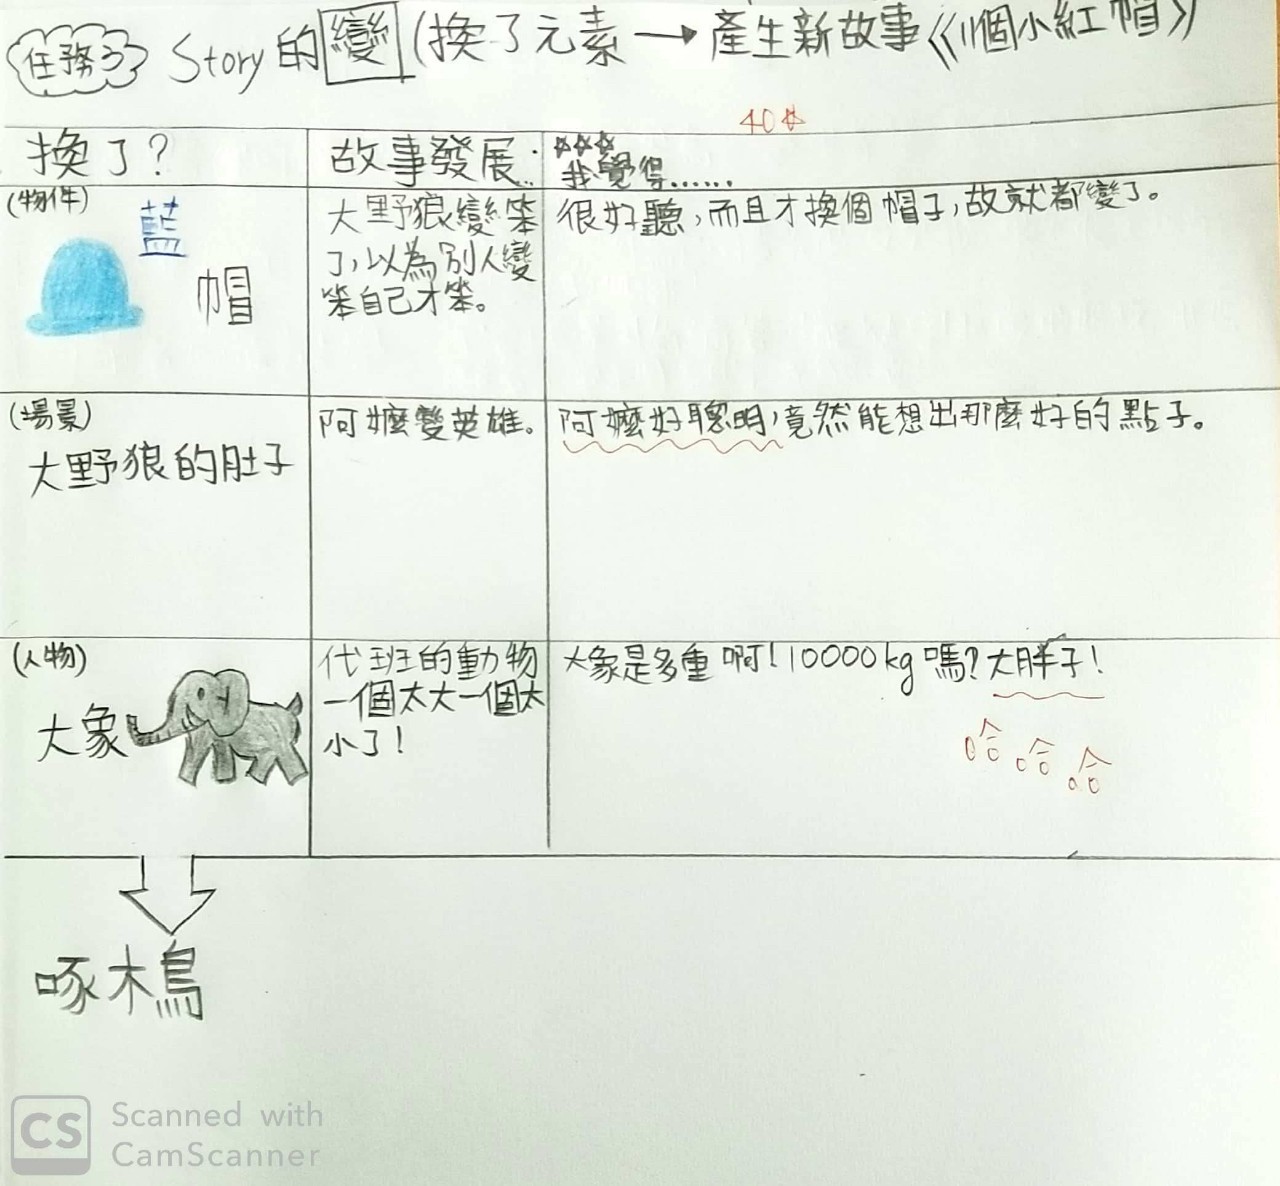 任務3 Story的變(換了元素→產生新故事《11個小紅帽》)
40
換了?
故事發展:
我覺得......
(物件)
藍
帽
大野狼變笨
了,以為別人變
笨自己才笨。
很好聽,而且才換個帽子,故就都變了。
(場景)
大野狼的肚子
阿嬤變英雄。
阿嬤好聰明,竟然能想出那麼好的點子。
(人物)
大象
代班的動物
一個太大一個太
小了!
大象是多重啊!10000kg嗎?大胖子!
哈哈哈
啄木鳥
CS
Scanned with
CamScanner